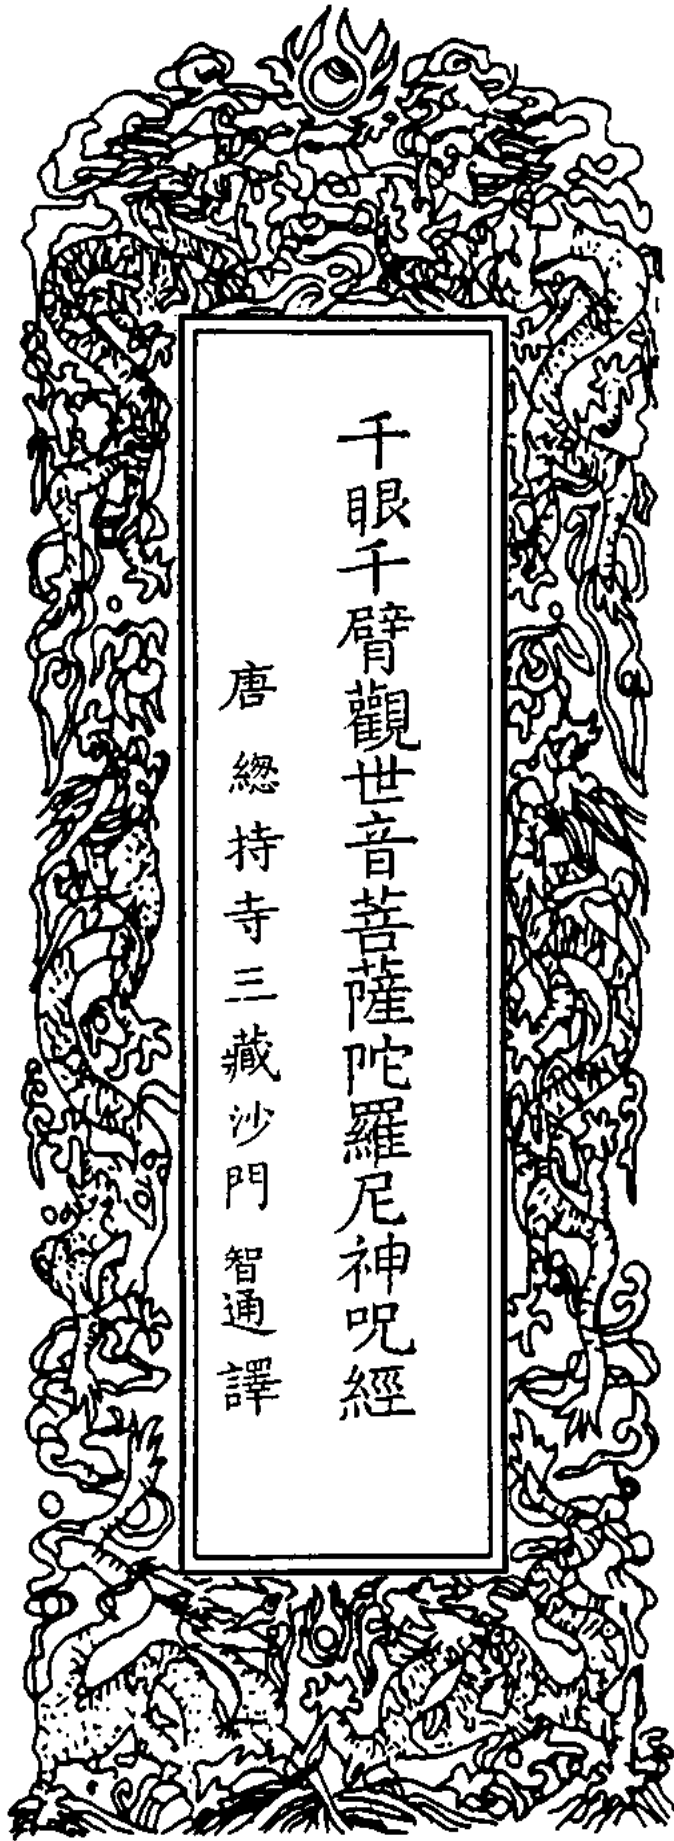 千眼千臂觀世音菩薩陀羅尼神呪經
唐總持寺三藏沙門智通譯